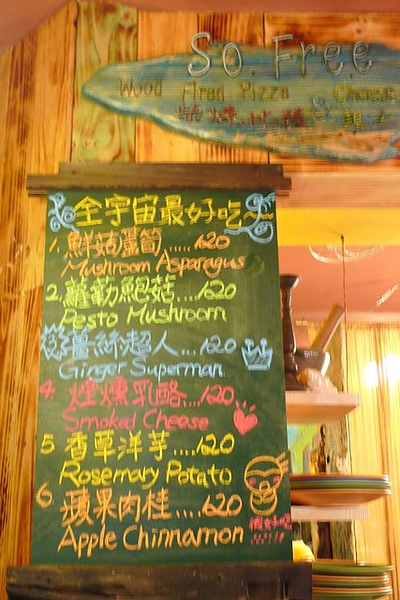 So Free
Wood Fired Pizza & Cheese
全宇宙最好吃~
1. 鮮菇蘆筍......120
Mushroom Asparagus
2. 蘿勒鮑菇...120
Pesto Mushroom
薑絲超人...120
Ginger Superman
4 煙燻乳酪...120
Smoked Cheese
5 香草洋芋....120
Rosemary Potato
6. 蘋果肉桂....120
Apple Chinnamon